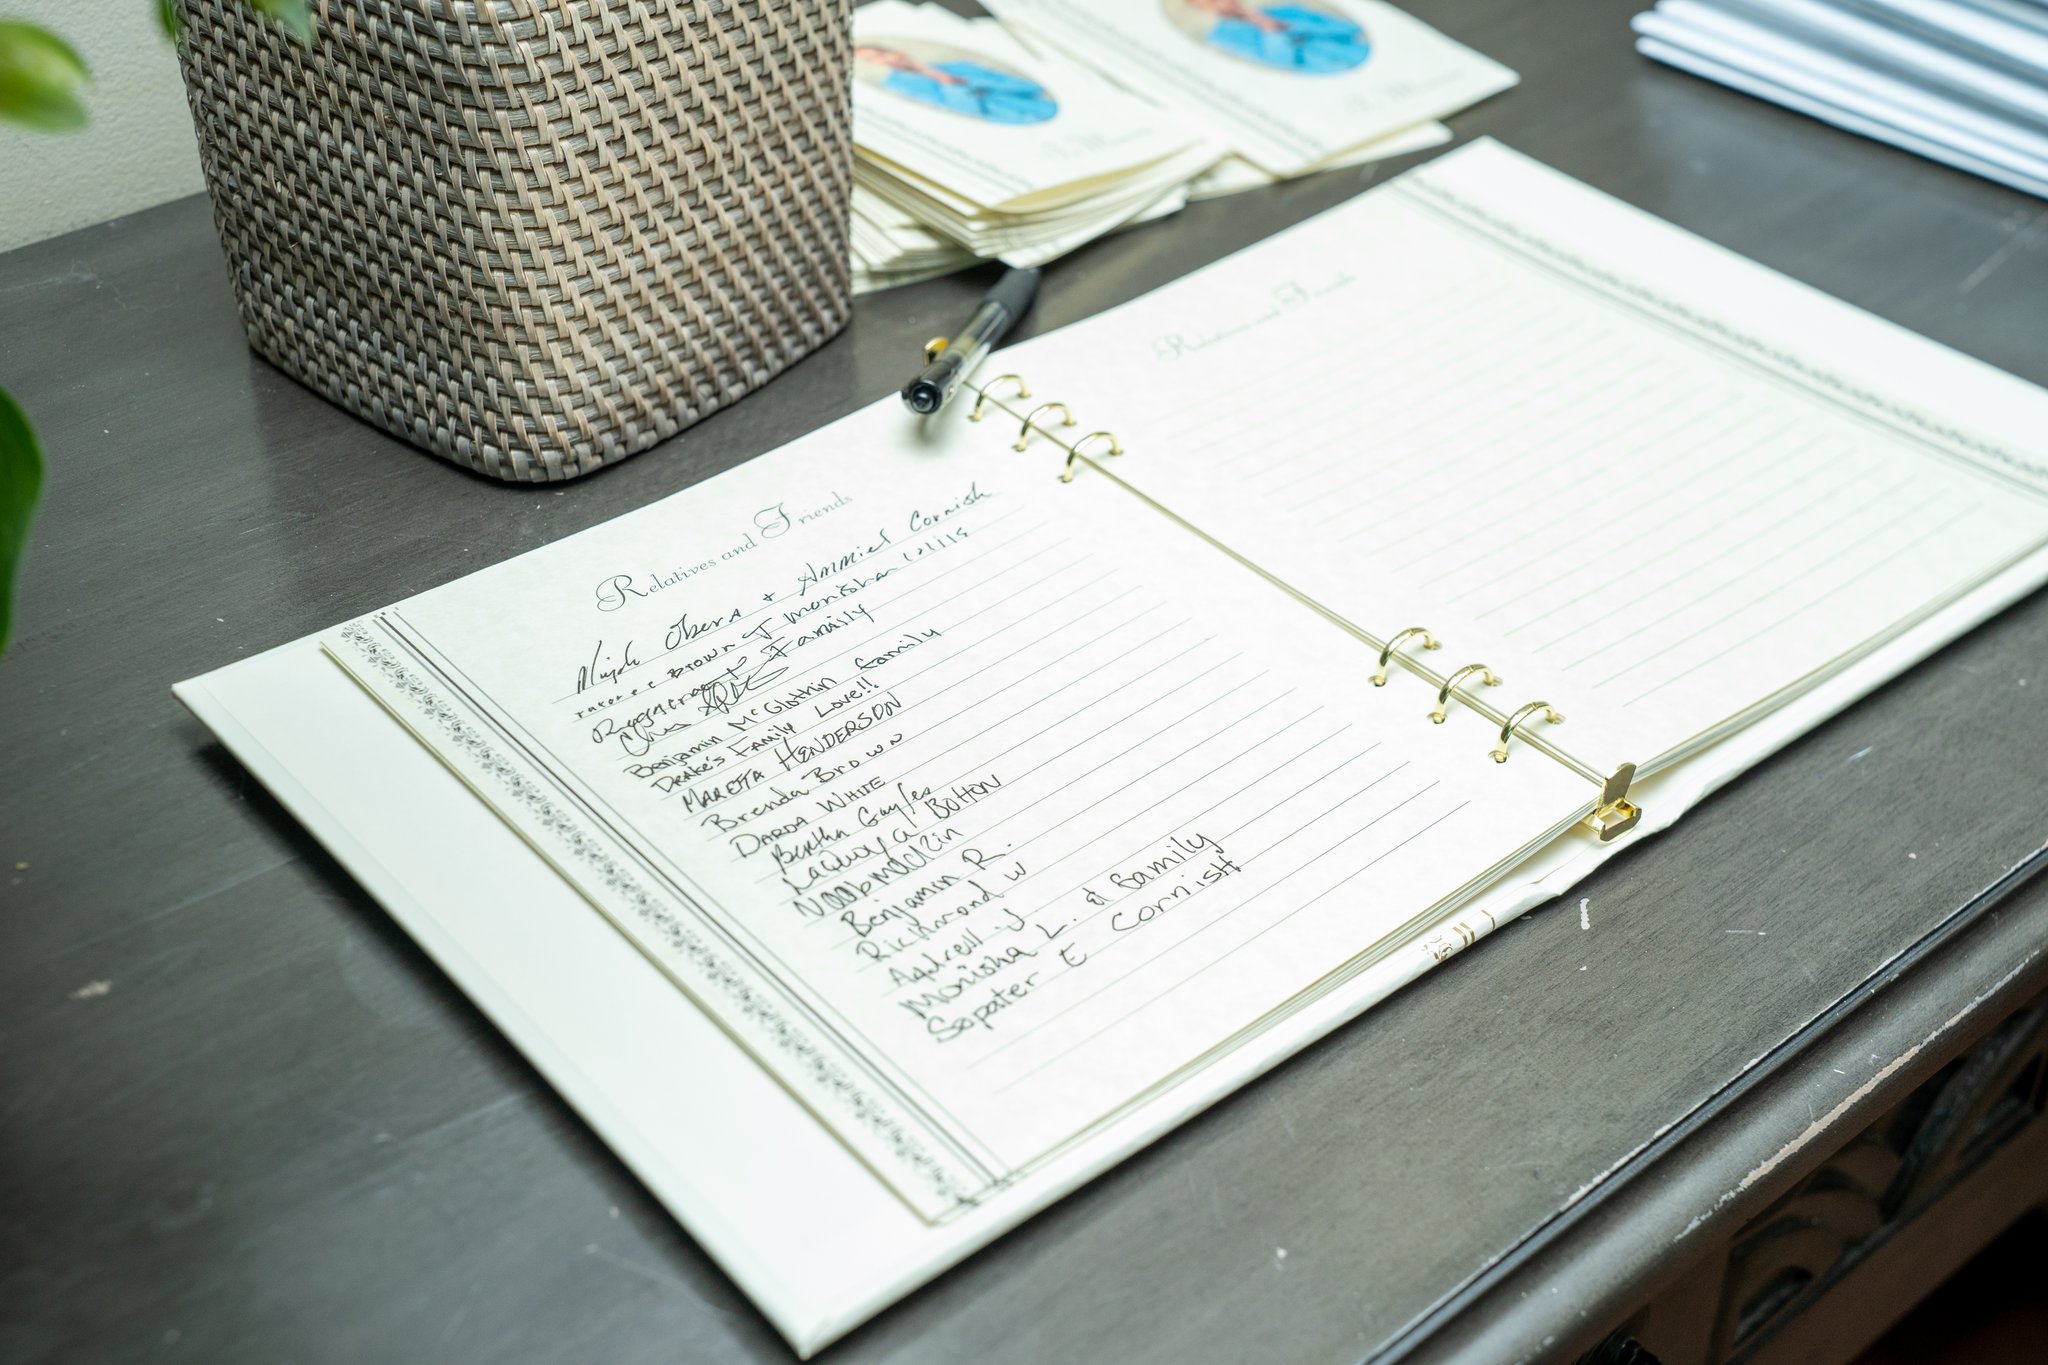 Relatives and Friends
Obera + Ammiel Cornish
Brown & Monisha 12/1/18
Family
Benjamin McGlothin family
Drake's Family Love!!
MARETTA HENDERSON
Brenda Brown
DARDA WHITE
Bertha Gayles
Laquoya Botton
Benjamin R.
Richmond W
J
Monisha L. & family
Sopater E Cornish
Relatives and Friends